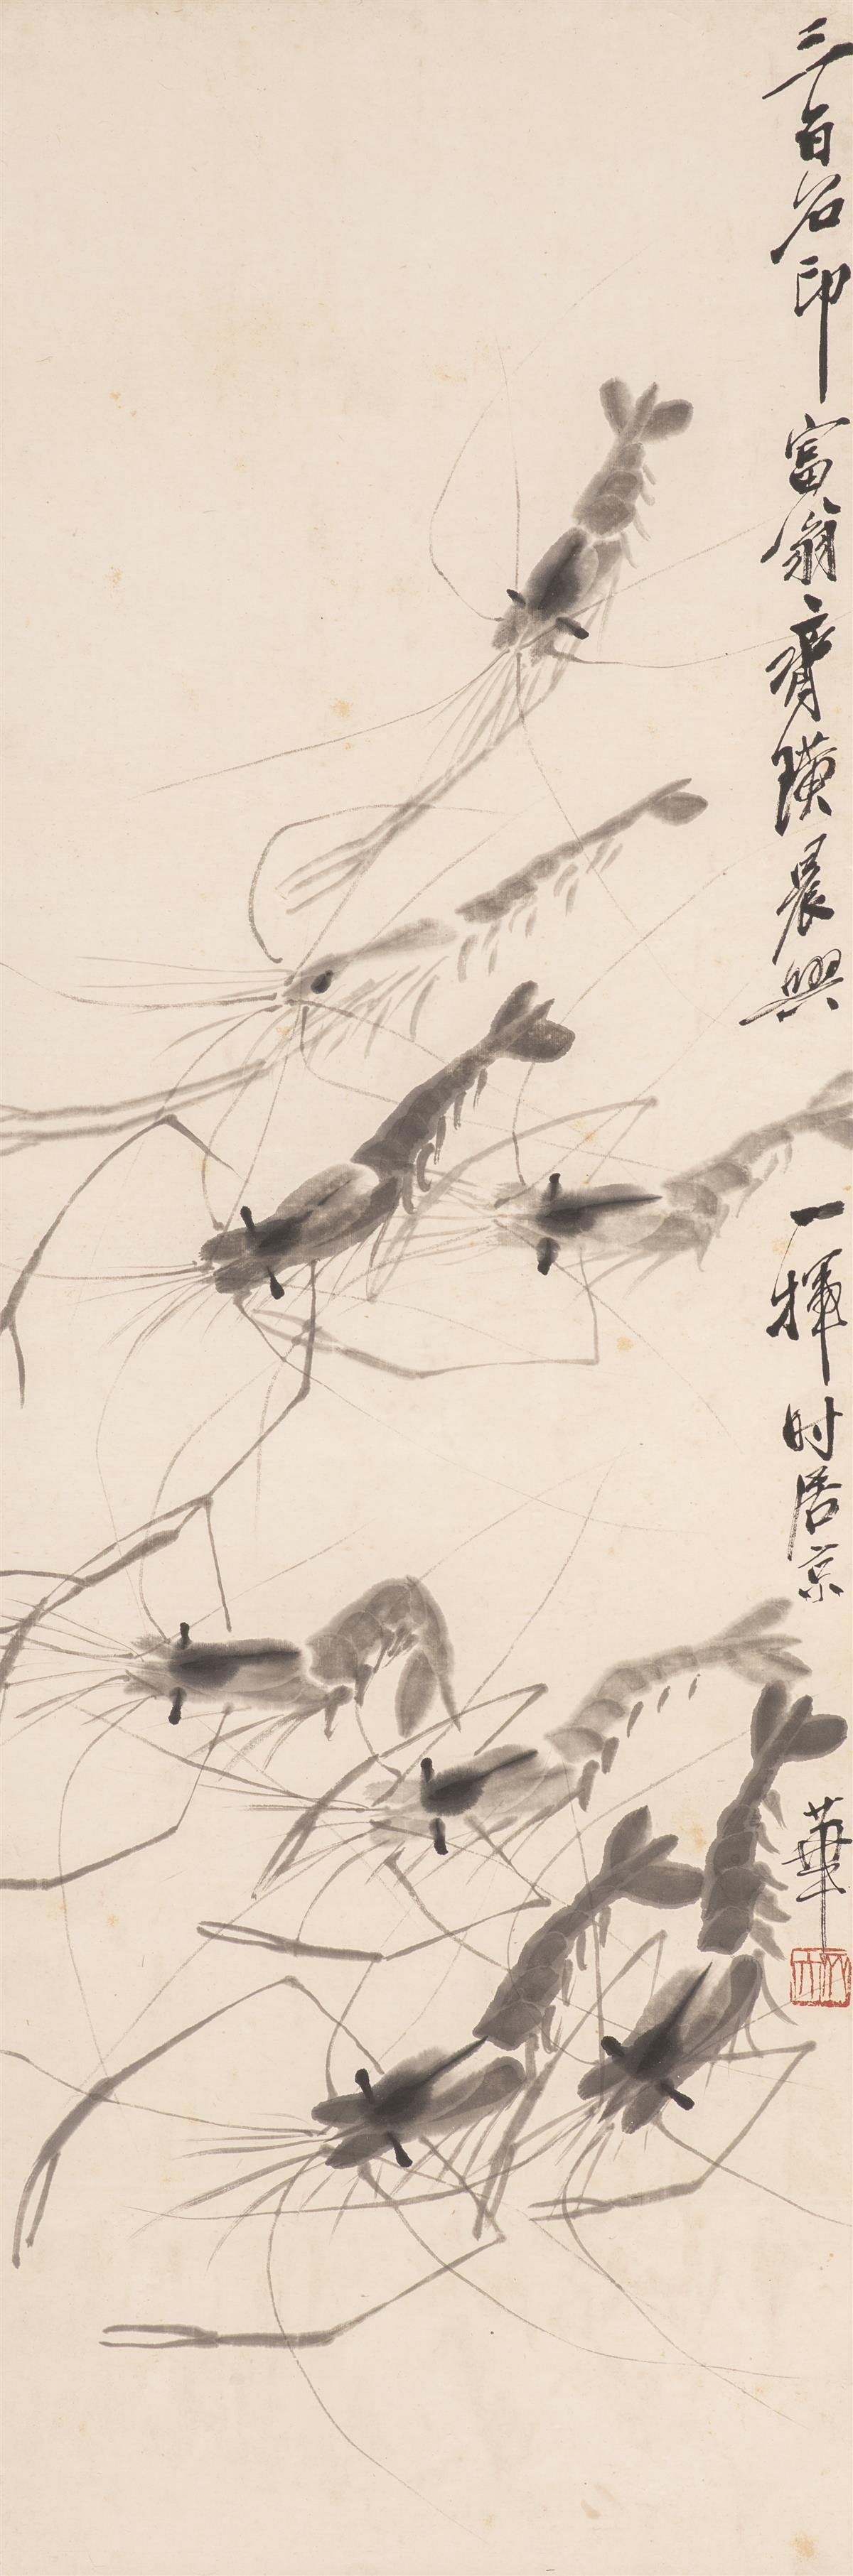 三百石印富翁齊璜晨興一揮時居京華